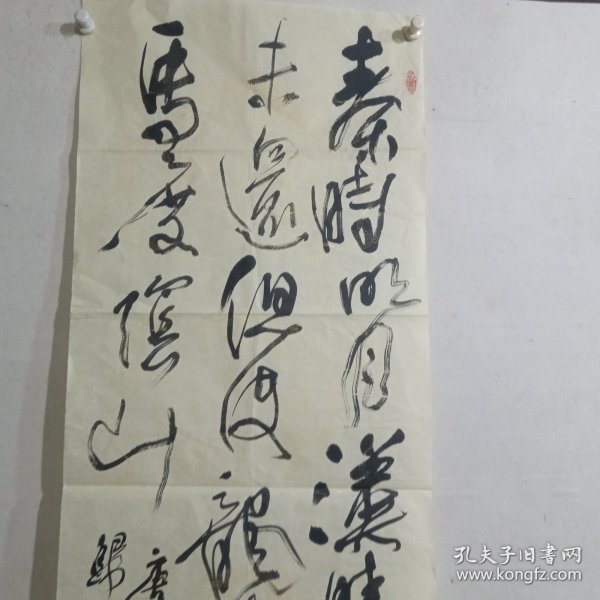 秦時明月漢時
未還但使龍
馬度陰山
唐
歸
孔夫子旧书网
www.kongfz.com